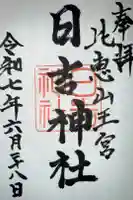 奉拝
比恵山王宮
日吉神社
令和七年六月二十八日